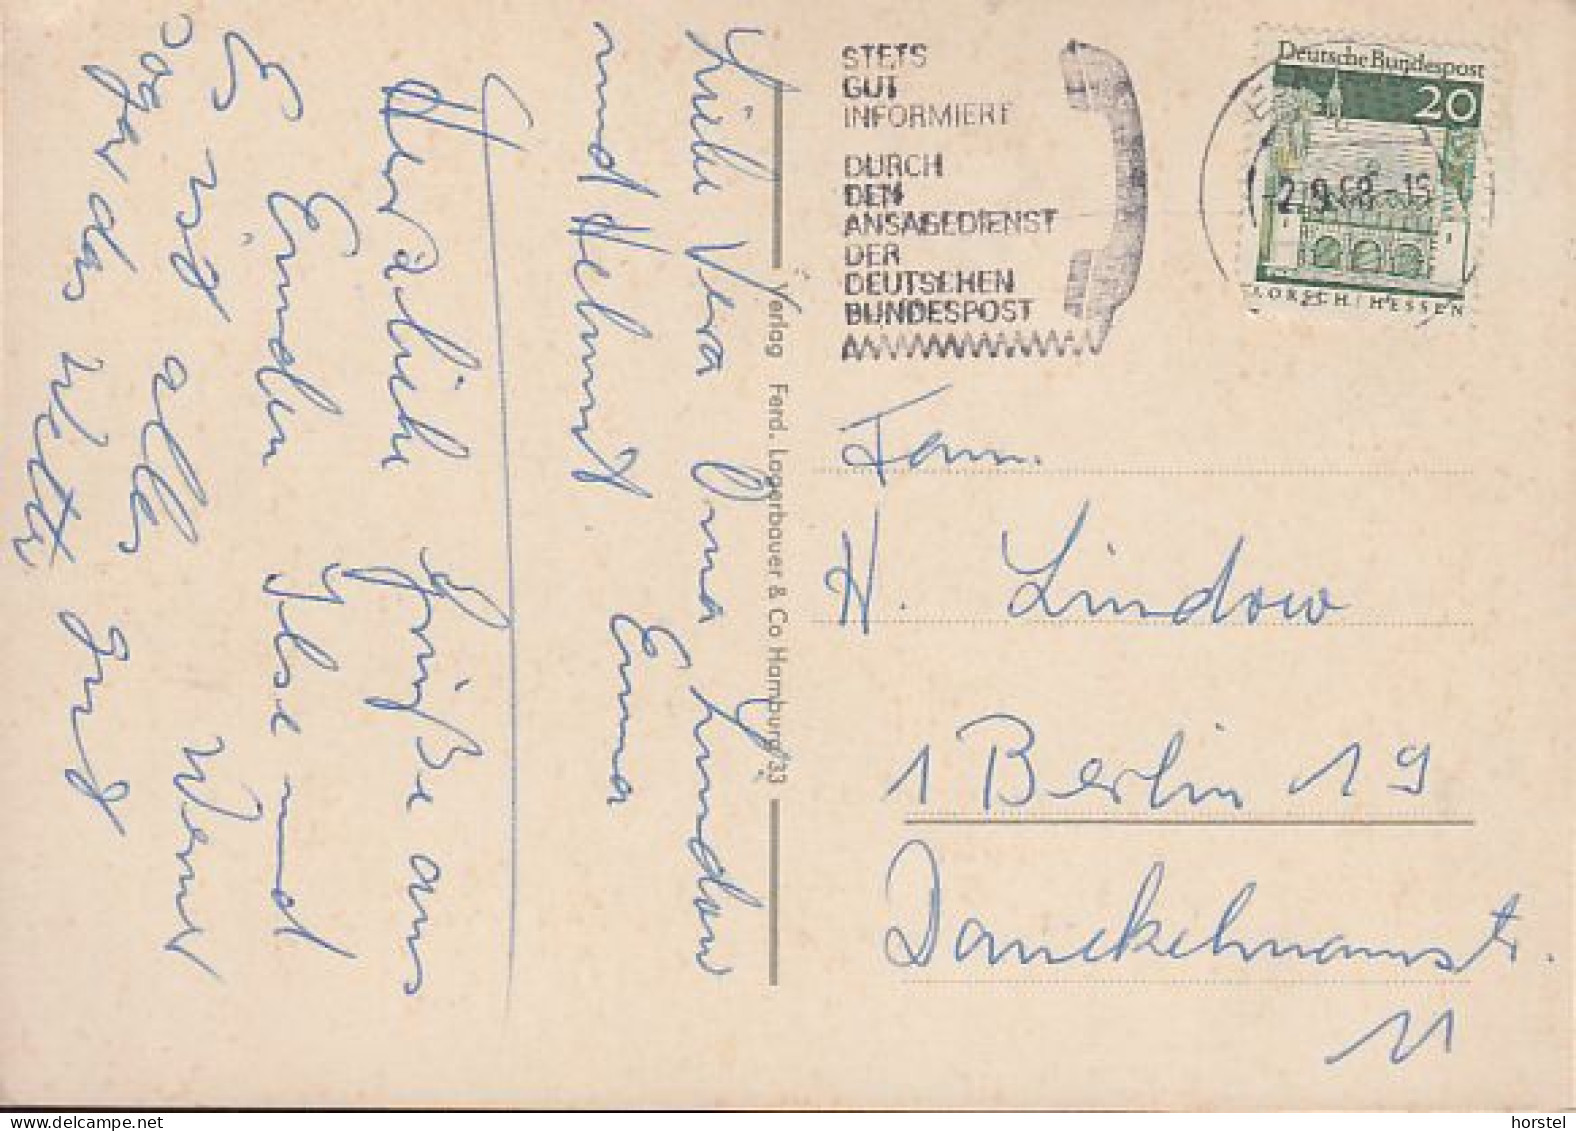 STETS
GUT
INFORMIERT
DURCH
DEN
ANSAGEDIENST
DER
DEUTSCHEN
BUNDESPOST
Deutsche Bundespost
20
2.9.68
LORSCH / HESSEN
Fam.
H. Lindow
1 Berlin 19
Danckelmannstr.
11
Verlag Ferd. Lagerbauer & Co Hamburg/33
Liebe Vera Oma Lindow
und Helmut. Emma
Herzliche Grüße aus
Emden Ilse und
Es ist alles Werner
sogar das Wetter gut
horstel